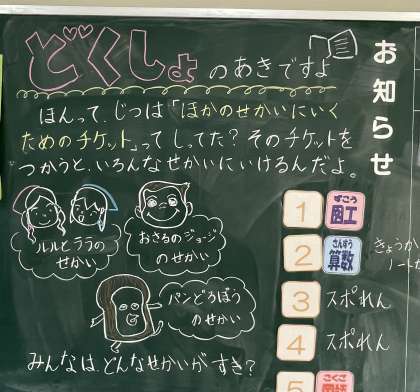 どくしょのあきですよ
ほんって、じつは「ほかのせかいにいく
ためのチケット」ってしってた？そのチケットを
つかうと、いろんなせかいにいけるんだよ。
ルルとララの
せかい
おさるのジョージ
のせかい
パンどろぼう
のせかい
みんなは、どんなせかいがすき？
お知らせ
1 ずこう 図工
2 さんすう 算数
きょうか
ノート
3 スポれん
4 スポれん
5 こくご 国語